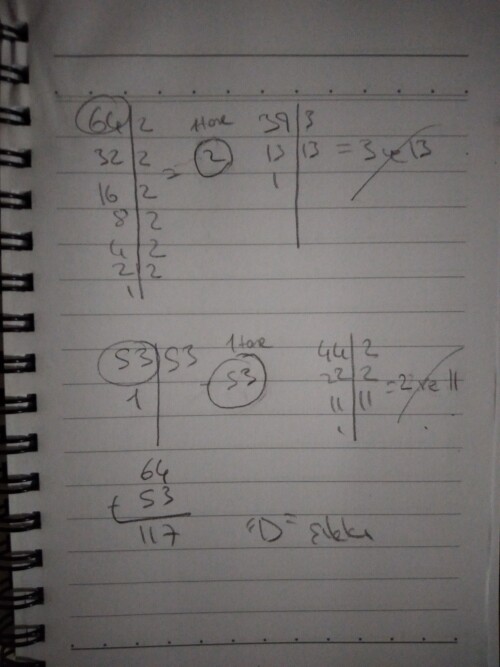 64 | 2 1 tane 39 | 3
32 | 2 = 2 13 | 13 = 3 ve 13
16 | 2 1
8 | 2
4 | 2
2 | 2
1
53 | 53 1 tane 44 | 2
1 - 53 22 | 2 = 2 ve 11
11 | 11
1
64
+ 53
117 "D" şıkkı